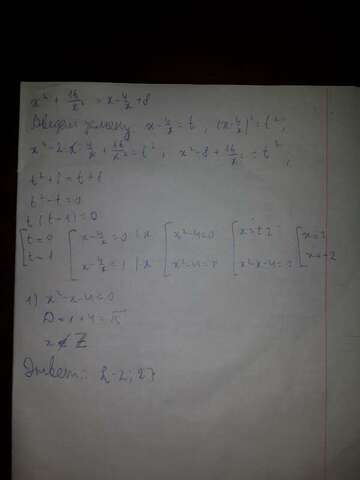 x² + 16/x² = x - 4/x + 8
Введем замену x - 4/x = t, (x - 4/x)² = t²,
x² - 2·x·4/x + 16/x² = t², x² - 8 + 16/x² = t²,
t² + 8 = t + 8
t² - t = 0
t(t - 1) = 0
[t = 0 [x - 4/x = 0 |·x [x² - 4 = 0 [x = ±2 [x = 2
t = 1 x - 4/x = 1 |·x x² - 4 = x x² - x - 4 = 0 x = -2
1) x² - x - 4 = 0
D = 1 + 4 = √5
x ∉ Z
Ответ: {-2; 2}